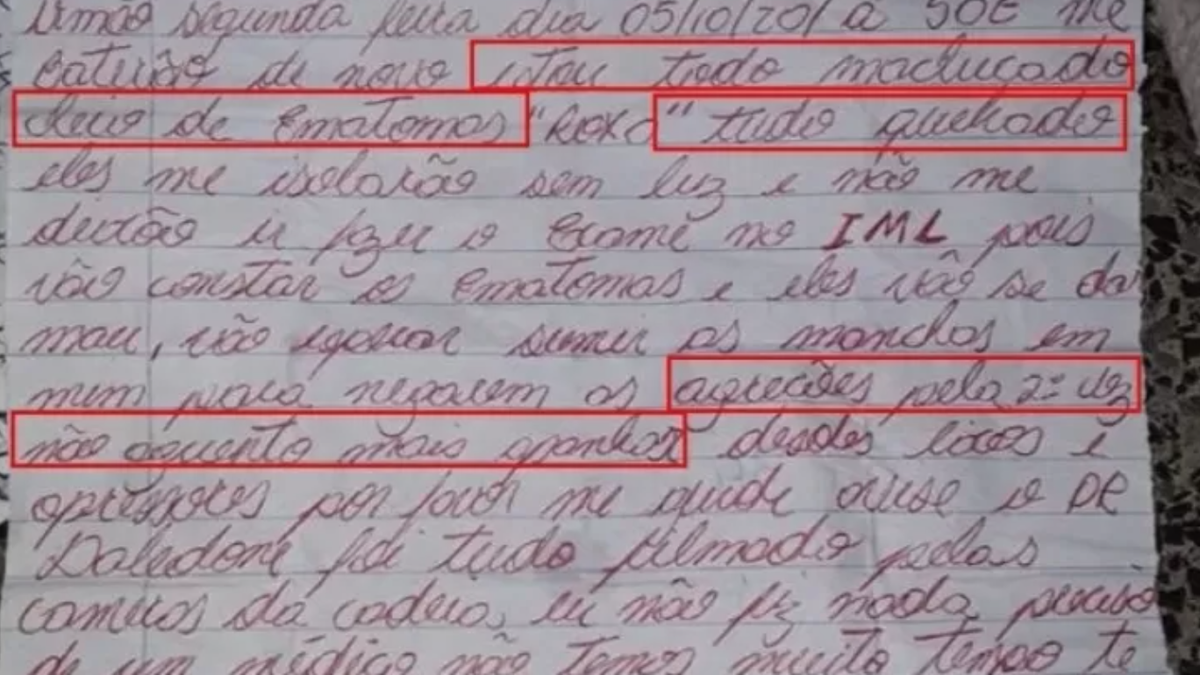 Irmão segunda feira dia 05/10/20/ a SOE me
baterão de novo estou todo machucado
cheio de Ematomas "ROXO" tudo quebrado
eles me isolarão sem luz e não me
deixão ir fazer o Exame no IML pois
vão constar os Ematomas e eles vão se dar
mau, vão esperar sumir as manchas em
mim para negarem as agreções pela 2ª vez
não aguento mais apanhar desdes lixos e
opressores por favor me ajude avise o DR
Daledone foi tudo filmado pelas
cameras da cadeia, eu não fiz nada preciso
de um médico não temos muito tempo te